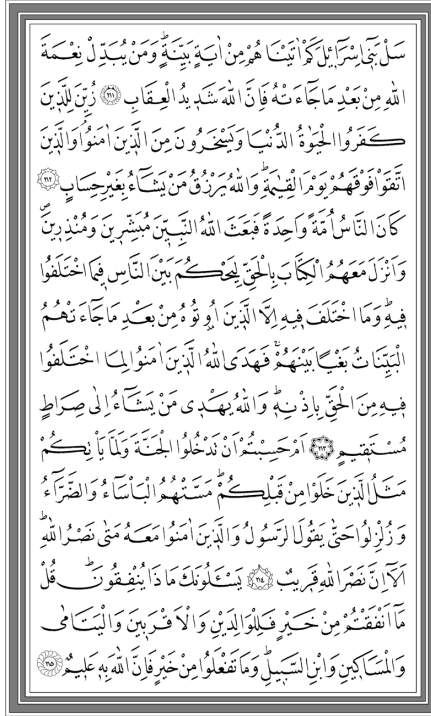 سَلْ بَنٖٓي اِسْرَٓائٖلَ كَمْ اٰتَيْنَاهُمْ مِنْ اٰيَةٍ بَيِّنَةٍؕ وَمَنْ يُبَدِّلْ نِعْمَةَ
اللّٰهِ مِنْ بَعْدِ مَا جَٓاءَتْهُ فَاِنَّ اللّٰهَ شَدٖيدُ الْعِقَابِ ﴿٢١١﴾ زُيِّنَ لِلَّذٖينَ
كَفَرُوا الْحَيٰوةُ الدُّنْيَا وَيَسْخَرُونَ مِنَ الَّذٖينَ اٰمَنُواۘ وَالَّذٖينَ
اتَّقَوْا فَوْقَهُمْ يَوْمَ الْقِيٰمَةِؕ وَاللّٰهُ يَرْزُقُ مَنْ يَشَٓاءُ بِغَيْرِ حِسَابٍ ﴿٢١٢﴾
كَانَ النَّاسُ اُمَّةً وَاحِدَةً فَبَعَثَ اللّٰهُ النَّبِيّٖنَ مُبَشِّرٖينَ وَمُنْذِرٖينَࣕ
وَاَنْزَلَ مَعَهُمُ الْكِتَابَ بِالْحَقِّ لِيَحْكُمَ بَيْنَ النَّاسِ فٖيمَا اخْتَلَفُوا
فٖيهِؕ وَمَا اخْتَلَفَ فٖيهِ اِلَّا الَّذٖينَ اُو۫تُوهُ مِنْ بَعْدِ مَا جَٓاءَتْهُمُ
الْبَيِّنَاتُ بَغْيًا بَيْنَهُمْۚ فَهَدَى اللّٰهُ الَّذٖينَ اٰمَنُوا لِمَا اخْتَلَفُوا
فٖيهِ مِنَ الْحَقِّ بِاِذْنِهٖؕ وَاللّٰهُ يَهْدٖي مَنْ يَشَٓاءُ اِلٰى صِرَاطٍ
مُسْتَقٖيمٍ ﴿٢١٣﴾ اَمْ حَسِبْتُمْ اَنْ تَدْخُلُوا الْجَنَّةَ وَلَمَّا يَاْتِكُمْ
مَثَلُ الَّذٖينَ خَلَوْا مِنْ قَبْلِكُمْؕ مَسَّتْهُمُ الْبَاْسَٓاءُ وَالضَّرَّٓاءُ
وَزُلْزِلُوا حَتّٰى يَقُولَ الرَّسُولُ وَالَّذٖينَ اٰمَنُوا مَعَهُ مَتٰى نَصْرُ اللّٰهِؕ
اَلَٓا اِنَّ نَصْرَ اللّٰهِ قَرٖيبٌ ﴿٢١٤﴾ يَسْـَٔلُونَكَ مَاذَا يُنْفِقُونَؕ قُلْ
مَٓا اَنْفَقْتُمْ مِنْ خَيْرٍ فَلِلْوَالِدَيْنِ وَالْاَقْرَبٖينَ وَالْيَتَامٰى
وَالْمَسَاكٖينِ وَابْنِ السَّبٖيلِؕ وَمَا تَفْعَلُوا مِنْ خَيْرٍ فَاِنَّ اللّٰهَ بِهٖ عَلٖيمٌ ﴿٢١٥﴾